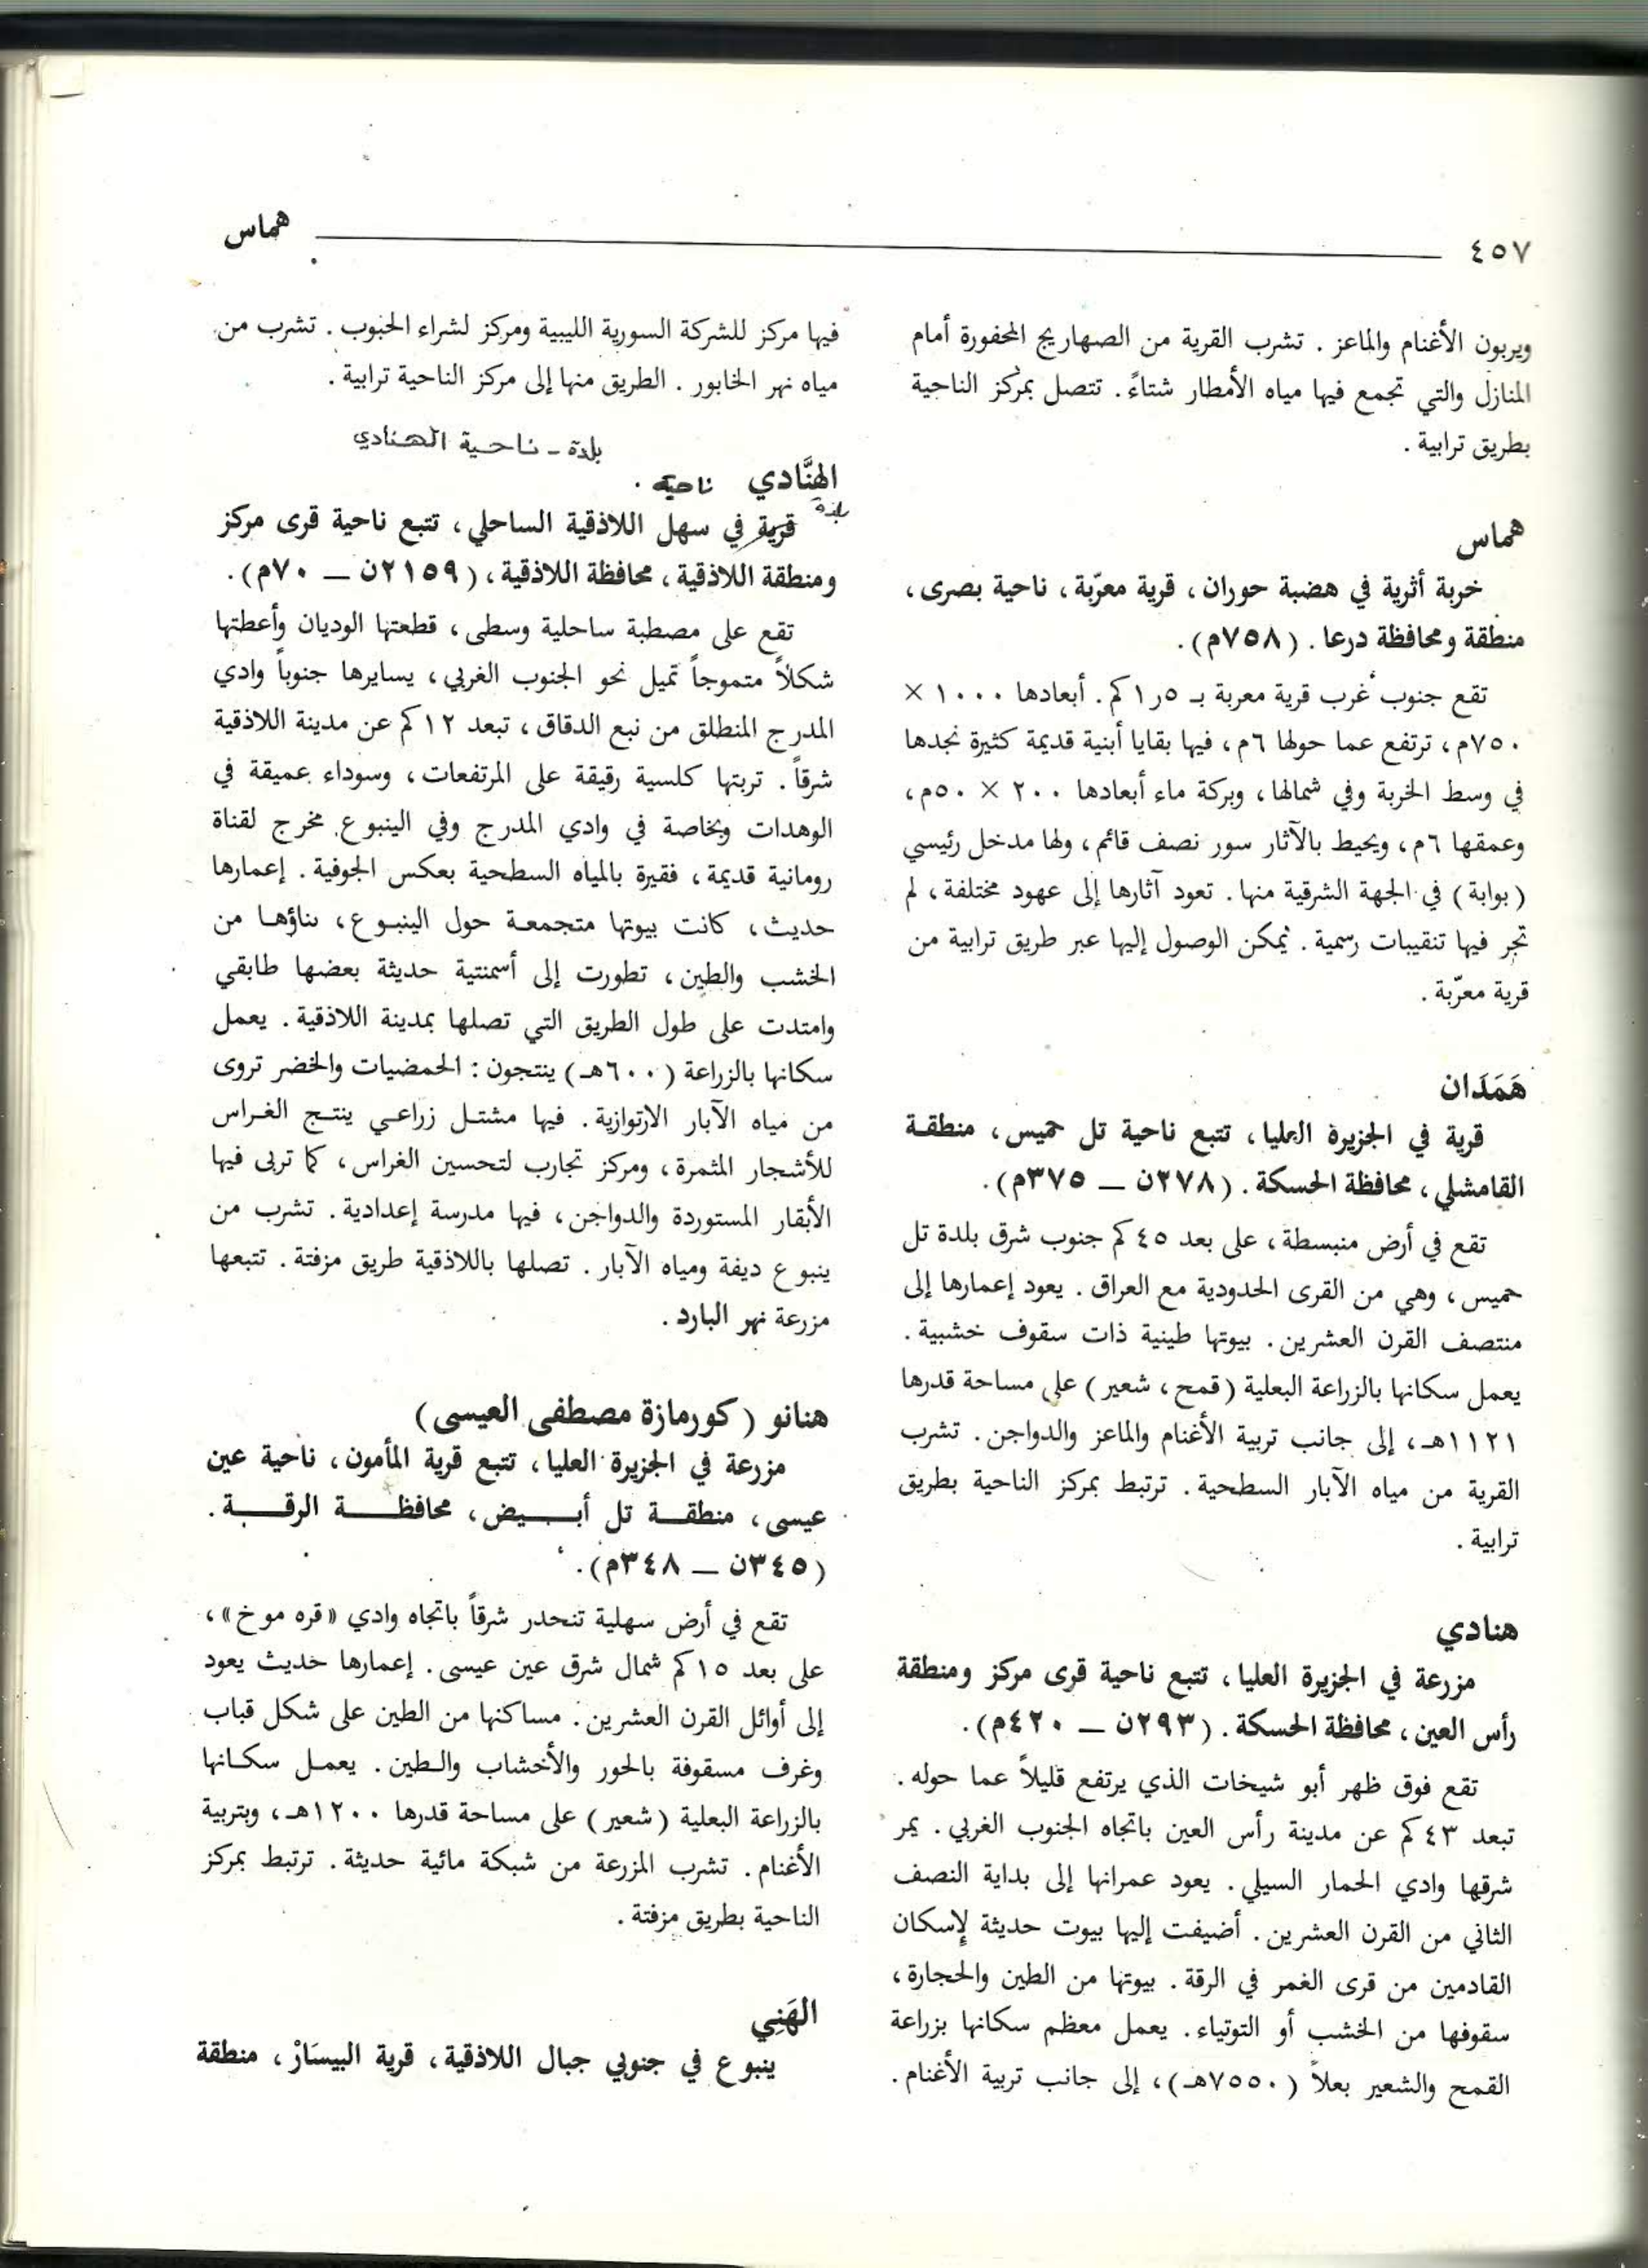 ٤٥٧
هماس
ويربون الأغنام والماعز . تشرب القرية من الصهاريج المحفورة أمام
المنازل والتي تجمع فيها مياه الأمطار شتاءً . تتصل بمركز الناحية
بطريق ترابية .
هماس
خربة أثرية في هضبة حوران ، قرية معرّبة ، ناحية بصرى ،
منطقة ومحافظة درعا . ( ٧٥٨م) .
تقع جنوب غرب قرية معربة بـ ٥ر١ كم . أبعادها ١٠٠٠ ×
٧٥٠م ، ترتفع عما حولها ٦م ، فيها بقايا أبنية قديمة كثيرة نجدها
في وسط الخربة وفي شمالها ، وبركة ماء أبعادها ٢٠٠ × ٥٠م ،
وعمقها ٦م ، ويحيط بالآثار سور نصف قائم ، ولها مدخل رئيسي
( بوابة ) في الجهة الشرقية منها . تعود آثارها إلى عهود مختلفة ، لم
تجر فيها تنقيبات رسمية . يمكن الوصول إليها عبر طريق ترابية من
قرية معرّبة .
هَمَدَان
قرية في الجزيرة العليا ، تتبع ناحية تل حميس ، منطقة
القامشلي ، محافظة الحسكة . ( ٢٧٨ن ــ ٣٧٥م) .
تقع في أرض منبسطة ، على بعد ٤٥ كم جنوب شرق بلدة تل
حميس ، وهي من القرى الحدودية مع العراق . يعود إعمارها إلى
منتصف القرن العشرين . بيوتها طينية ذات سقوف خشبية .
يعمل سكانها بالزراعة البعلية ( قمح ، شعير ) على مساحة قدرها
١١٢١هـ ، إلى جانب تربية الأغنام والماعز والدواجن . تشرب
القرية من مياه الآبار السطحية . ترتبط بمركز الناحية بطريق
ترابية .
هنادي
مزرعة في الجزيرة العليا ، تتبع ناحية قرى مركز ومنطقة
رأس العين ، محافظة الحسكة . ( ٢٩٣ن ــ ٤٢٠م) .
تقع فوق ظهر أبو شيخات الذي يرتفع قليلاً عما حوله .
تبعد ٤٣ كم عن مدينة رأس العين باتجاه الجنوب الغربي . يمر
شرقها وادي الحمار السيلي . يعود عمرانها إلى بداية النصف
الثاني من القرن العشرين . أضيفت إليها بيوت حديثة لإسكان
القادمين من قرى الغمر في الرقة . بيوتها من الطين والحجارة ،
سقوفها من الخشب أو التوتياء . يعمل معظم سكانها بزراعة
القمح والشعير بعلاً ( ٧٥٥٠هـ ) ، إلى جانب تربية الأغنام .
فيها مركز للشركة السورية الليبية ومركز لشراء الحبوب . تشرب من
مياه نهر الخابور . الطريق منها إلى مركز الناحية ترابية .
بلدة - ناحية الهنادي
الهنَّادي ناحية .
بلدة
قرية في سهل اللاذقية الساحلي ، تتبع ناحية قرى مركز
ومنطقة اللاذقية ، محافظة اللاذقية ، ( ٢١٥٩ن ــ ٧٠م) .
تقع على مصطبة ساحلية وسطى ، قطعتها الوديان وأعطتها
شكلاً متموجاً تميل نحو الجنوب الغربي ، يسايرها جنوباً وادي
المدرج المنطلق من نبع الدقاق ، تبعد ١٢ كم عن مدينة اللاذقية
شرقاً . تربتها كلسية رقيقة على المرتفعات ، وسوداء عميقة في
الوهدات وبخاصة في وادي المدرج وفي الينبوع مخرج لقناة
رومانية قديمة ، فقيرة بالمياه السطحية بعكس الجوفية . إعمارها
حديث ، كانت بيوتها متجمعة حول الينبوع ، بناؤها من
الخشب والطين ، تطورت إلى أسمنتية حديثة بعضها طابقي
وامتدت على طول الطريق التي تصلها بمدينة اللاذقية . يعمل
سكانها بالزراعة ( ٦٠٠هـ ) ينتجون : الحمضيات والخضر تروى
من مياه الآبار الارتوازية . فيها مشتل زراعي ينتج الغراس
للأشجار المثمرة ، ومركز تجارب لتحسين الغراس ، كما تربى فيها
الأبقار المستوردة والدواجن ، فيها مدرسة إعدادية . تشرب من
ينبوع ديفة ومياه الآبار . تصلها باللاذقية طريق مزفتة . تتبعها
مزرعة نهر البارد .
هنانو ( كورمازة مصطفى العيسى )
مزرعة في الجزيرة العليا ، تتبع قرية المأمون ، ناحية عين
عيسى ، منطقة تل أبيض ، محافظة الرقة .
( ٣٤٥ن ــ ٣٤٨م) .
تقع في أرض سهلية تنحدر شرقاً باتجاه وادي « قره موخ » ،
على بعد ١٥ كم شمال شرق عين عيسى . إعمارها حديث يعود
إلى أوائل القرن العشرين . مساكنها من الطين على شكل قباب
وغرف مسقوفة بالحور والأخشاب والطين . يعمل سكانها
بالزراعة البعلية ( شعير ) على مساحة قدرها ١٢٠٠هـ ، وبتربية
الأغنام . تشرب المزرعة من شبكة مائية حديثة . ترتبط بمركز
الناحية بطريق مزفتة .
الهَنِي
ينبوع في جنوبي جبال اللاذقية ، قرية البيسَارْ ، منطقة